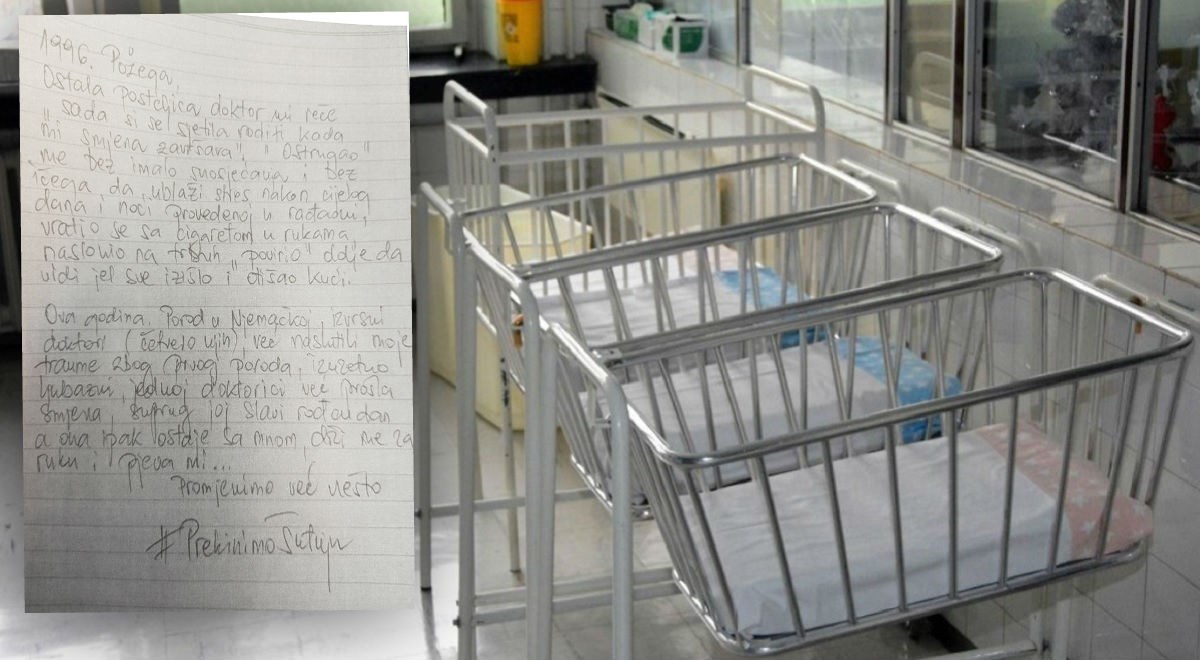 1996. Požega,
Ostala posteljica doktor mi reče
"sada si se sjetila roditi kada
mi smjena završava", "Ostrugao"
me bez imalo suosjećanja i bez
ičega da ublaži stres nakon cijelog
dana i noći provedenoj u rađaoni,
vratio se sa cigaretom u rukama
naslonio na trbuh "povirio" dolje da
vidi jel sve izišlo i otišao kući.
Ova godina. Porod u Njemačkoj, izvrsni
doktori (četvero njih) već naslutili moje
traume zbog prvog poroda, izuzetno
ljubazni, jednoj doktorici već prošla
smjena, suprug joj slavi rođendan
a ona ipak ostaje sa mnom, drži me za
ruku i pjeva mi...
Promjenimo već nešto
#PrekinimoŠutnju